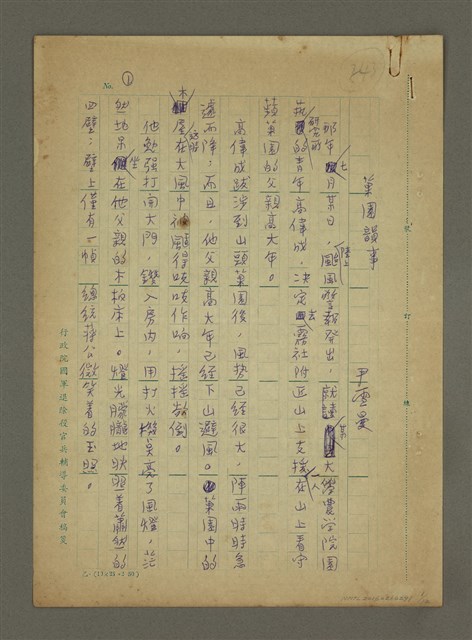 No. 1
果園韻事
尹雪曼
那年七月某日,颱風警報發出,就讀某大學農學院園
研究所的青年高偉成,決定去霧社附近山上支援一人在山上看守
蘋果園的父親高大年。
高偉成跋涉到山頭果園後,風勢已經很大,陣雨時時急
遽而降;而且,他父親高大年已經下山避風。果園中的
木屋在大風中被颳得吱吱作响,搖搖欲倒。
他勉强打開大門,鑽入房內,用打火機點亮了風燈,茫
然地呆坐在他父親的木板床上。燈光朦朧地映照着蕭然的
四壁;壁上僅有一幀 總統蔣公微笑着的玉照。
行政院國軍退除役官兵輔導委員會稿箋